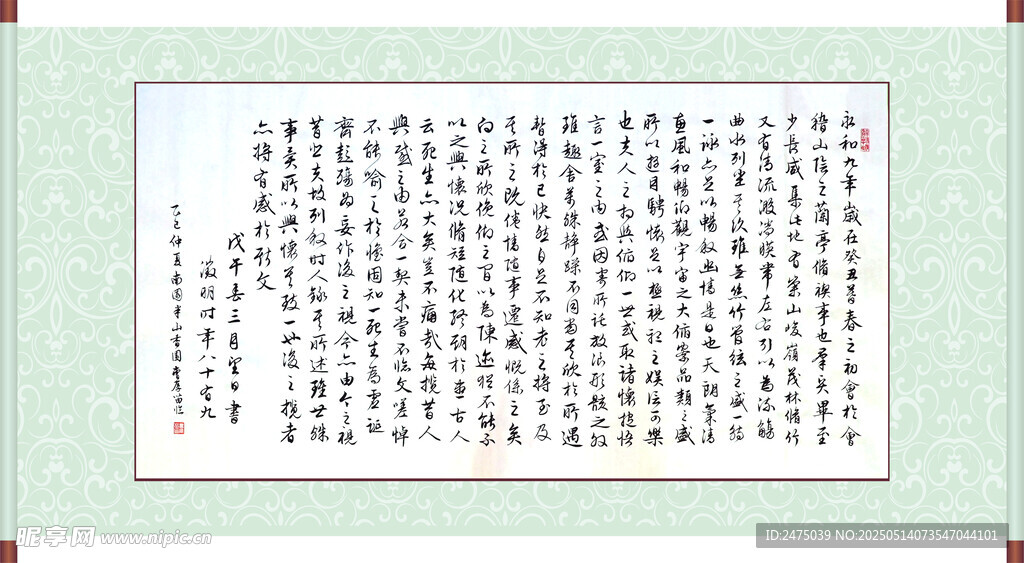 永和九年歲在癸丑暮春之初會於會
稽山陰之蘭亭脩禊事也羣賢畢至
少長咸集此地有崇山峻嶺茂林脩竹
又有清流激湍映帶左右引以為流觴
曲水列坐其次雖無絲竹管絃之盛一觴
一詠亦足以暢敘幽情是日也天朗氣清
惠風和暢仰觀宇宙之大俯察品類之盛
所以遊目騁懷足以極視聽之娛信可樂
也夫人之相與俯仰一世或取諸懷抱悟
言一室之內或因寄所託放浪形骸之外
雖趣舍萬殊靜躁不同當其欣於所遇
暫得於己快然自足不知老之將至及
其所之既倦情隨事遷感慨係之矣
向之所欣俛仰之間以為陳迹猶不能不
以之興懷況脩短隨化終期於盡古人
云死生亦大矣豈不痛哉每攬昔人
興感之由若合一契未嘗不臨文嗟悼
不能喻之於懷固知一死生為虛誕
齊彭殤為妄作後之視今亦由今之視
昔悲夫故列敘時人錄其所述雖世殊
事異所以興懷其致一也後之攬者
亦將有感於斯文
戊午春三月望日書
徵明時年八十有九
乙巳仲夏南園半山書園
昵享网 www.nipic.cn
ID:2475039 NO:20250514073547044101